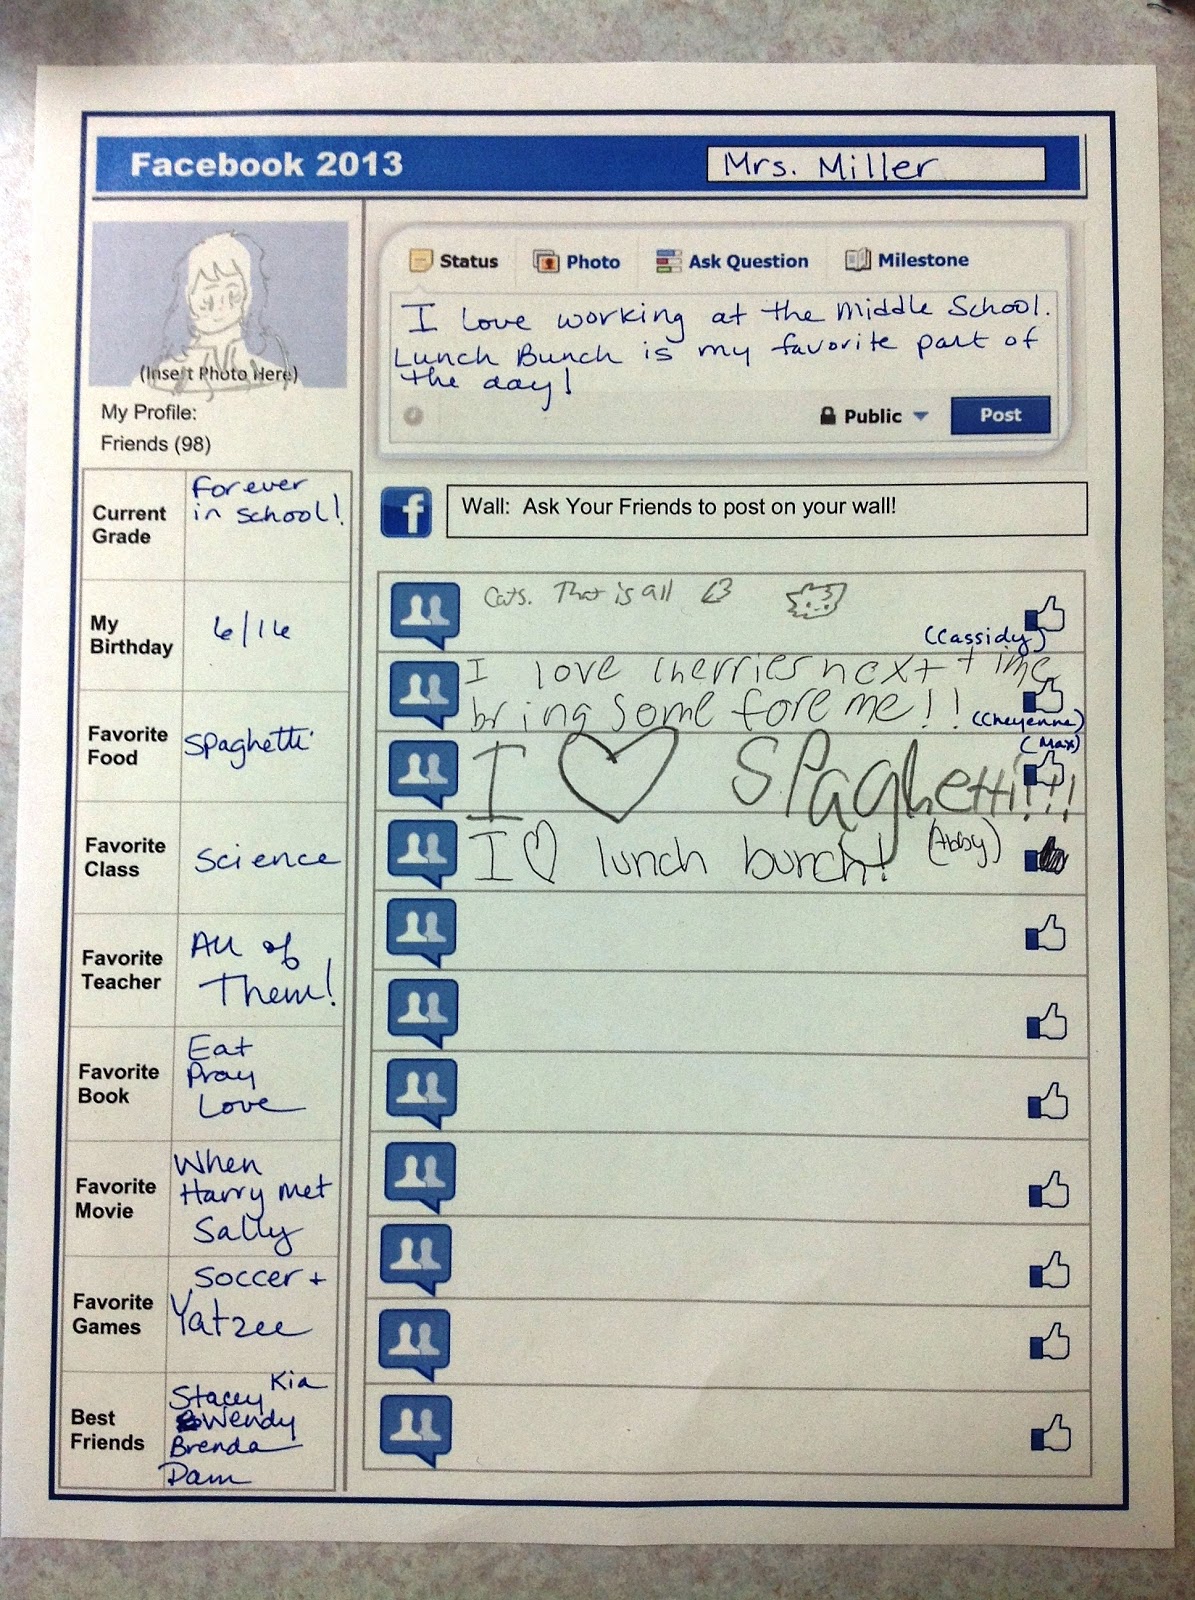 Facebook 2013
Mrs. Miller
(Insert Photo Here)
My Profile:
Friends (98)
Current Grade
Forever
in school!
My Birthday
6/16
Favorite Food
Spaghetti
Favorite Class
Science
Favorite Teacher
All of
Them!
Favorite Book
Eat
Pray
Love
Favorite Movie
When
Harry Met
Sally
Favorite Games
Soccer +
Yatzee
Best Friends
Kia
Stacey
Wendy
Brenda
Pam
Status Photo Ask Question Milestone
I love working at the Middle School.
Lunch Bunch is my favorite part of
the day!
Public Post
f
Wall: Ask Your Friends to post on your wall!
Cats. That is all <3
(Cassidy)
I love cherries next time
bring some fore me!! (Cheyenne)
(Max)
I ♡ Spaghetti!!!
I ♡ lunch bunch! (Abby)